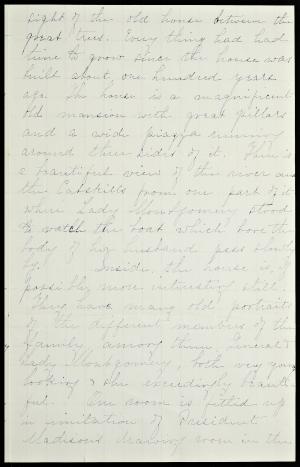 sight of the old house between the
great trees. Every thing had had
time to grow since the house was
built about one hundred years
ago. The house is a magnificent
old mansion with great pillars
and a wide piazza running
around three sides of it. There is
a beautiful view of the river and
the Catskills from one part of it
where Lady Montgomery stood
to watch the boat which bore the
body of her husband pass slowly
by. Inside, the house is, if
possible, more interesting still.
They have many old portraits
of the different members of the
family, among them, General &
Lady Montgomery, both very young
looking & she exceedingly beauti-
ful. One room is fitted up
in imitation of President
Madison's drawing room in the